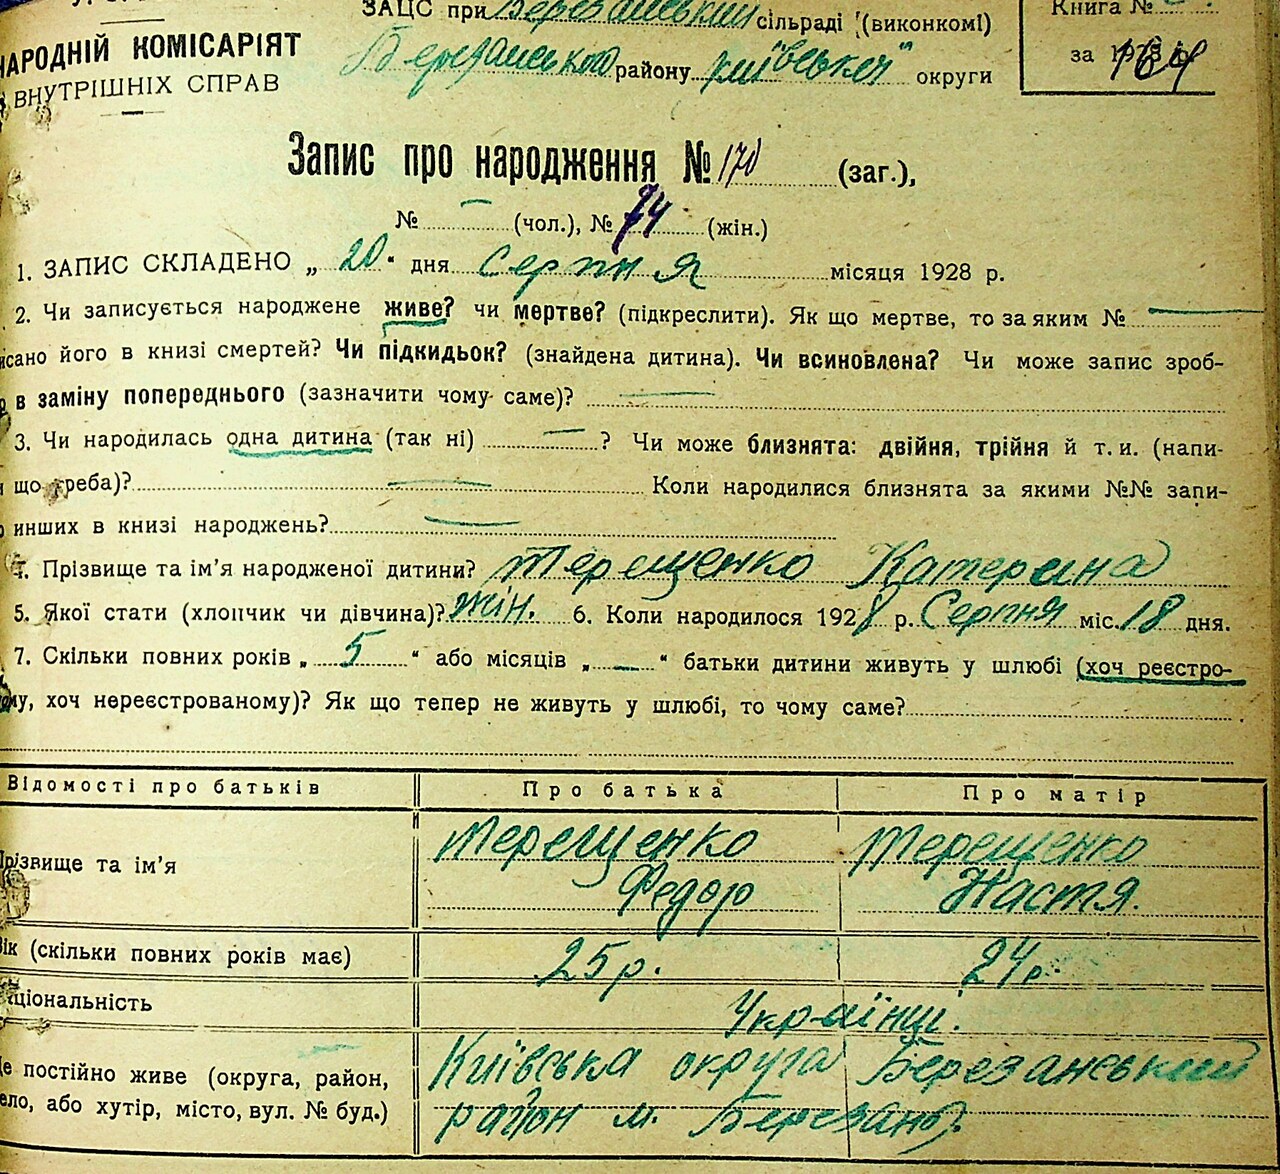 ЗАЦС при Березанський сільраді (виконкомі)
Книга №
НАРОДНІЙ КОМІСАРІЯТ
Березанського району Київської округи
за
ВНУТРІШНІХ СПРАВ
Запис про народження № 170 (заг.),
№ — (чол.), № 74 (жін.)
1. ЗАПИС СКЛАДЕНО „ 20 “ дня серпня місяця 1928 р.
2. Чи записується народжене живе? чи мертве? (підкреслити). Як що мертве, то за яким № —
исано його в книзі смертей? Чи підкидьок? (знайдена дитина). Чи всиновлена? Чи може запис зроб-
в заміну попереднього (зазначити чому саме)? —
3. Чи народилась одна дитина (так ні) — ? Чи може близнята: двійня, трійня й т. и. (напи-
що треба)? — Коли народилися близнята за якими №№ запи-
инших в книзі народжень? —
4. Прізвище та ім’я народженої дитини? Терещенко Катерина
5. Якої стати (хлопчик чи дівчина)? жін. 6. Коли народилося 1928 р. Серпня міс. 18 дня.
7. Скільки повних років „ 5 “ або місяців „ — “ батьки дитини живуть у шлюбі (хоч реєстро-
му, хоч нереєстрованому)? Як що тепер не живуть у шлюбі, то чому саме?
Відомості про батьків Про батька Про матір
Прізвище та ім’я Терещенко Федор Терещенко Настя.
Вік (скільки повних років має) 25 р. 24 р.
Національність Українці.
Де постійно живе (округа, район, Київська округа Березанський
село, або хутір, місто, вул. № буд.) район м. Березань.